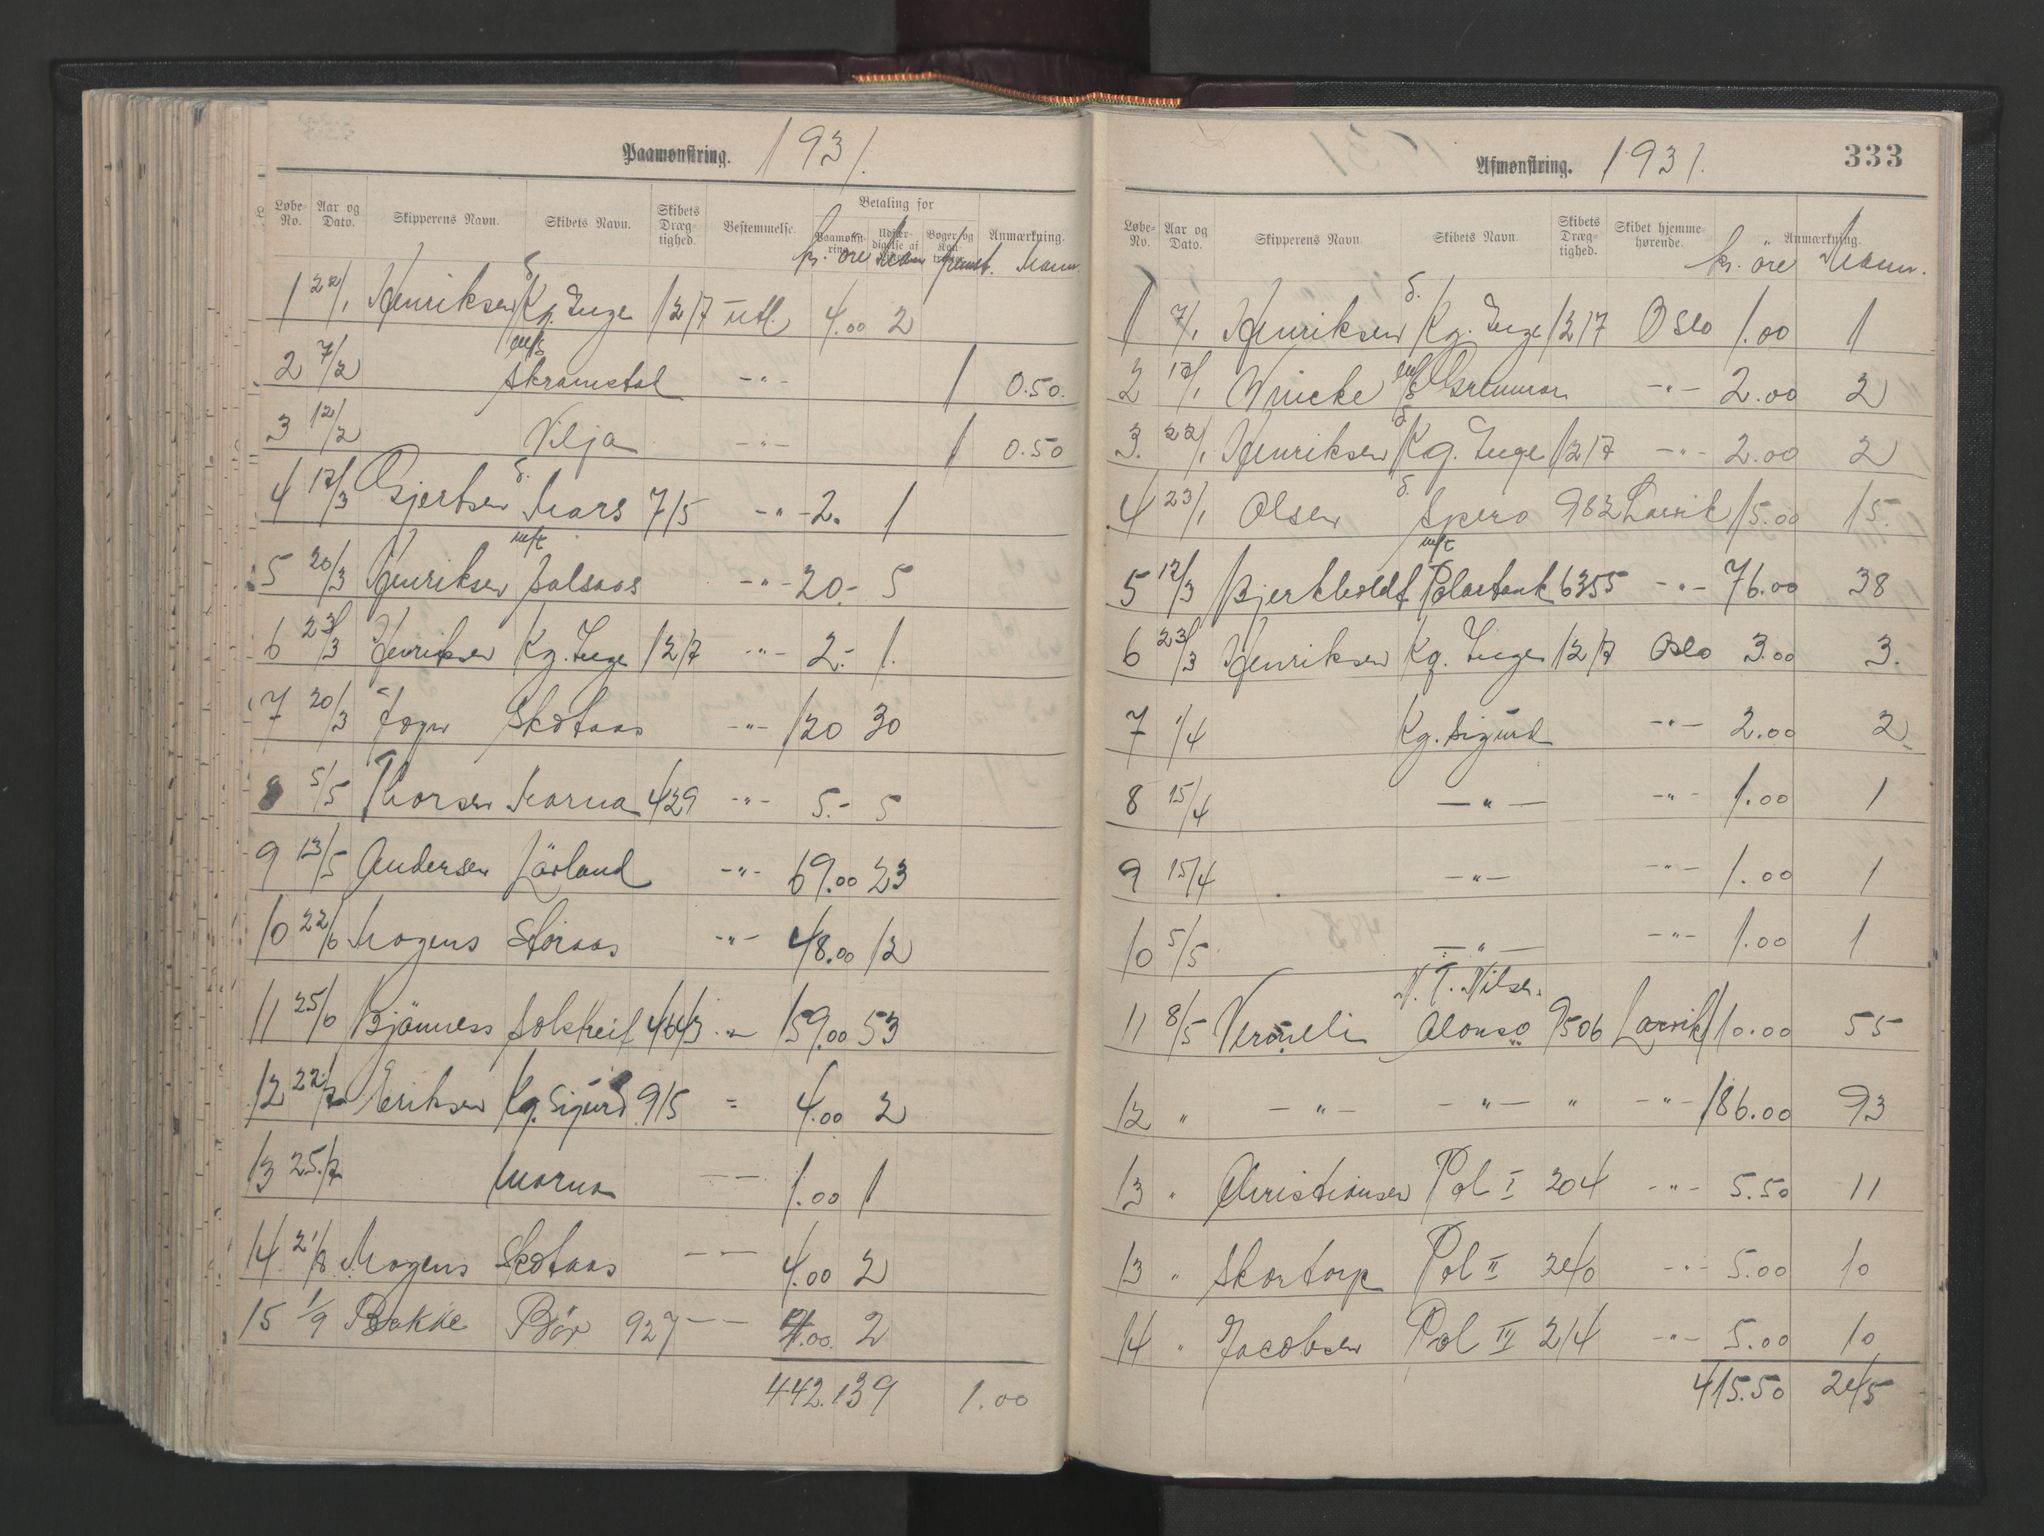 Paamønstring. 1931.
Løbe-No. Aar og Dato. Skipperens Navn. Skibets Navn. Skibets Dræg-tighed. Bestemmelse. Betaling for Anmærkning.
kr. øre Mann fremst. Mann
1 22/1 Henriksen D. Kg. Inge 1217 utl. 4.00 2
2 7/2 m/s Skramstad -"- 1 0.50.
3 12/2 Vilja -"- 1 0.50
4 17/3 Gjertsen D. Mars 715 -"- 2. 1
5 20/3 Henriksen m/t Solsaas -"- 20.- 5
6 23/3 Henriksen Kg. Inge 1217 -"- 2.- 1.
7 20/3 Foyn Skotaas -"- 120 30
8 5/5 Thorsen Marna 429 -"- 5.- 5
9 13/5 Andersen Lärland -"- 69.00 23
10 22/6 Mogens Storaas -"- 48.00 12
11 25/6 Bjönness Solstreif 4643 -"- 159.00 53
12 22/7 Eriksen Kg. Sigurd 915 = 4.00 2
13 25/7 Marna -- 1.00 1
14. 21/8 Mogens Skotaas -- 4.00 2
15 1/9 Bakke Bör 927 -- 4.00. 2
442.139 1.00
Afmønstring. 1931. 333
Løbe-No. Aar og Dato. Skipperens Navn. Skibets Navn. Skibets Dræg-tighed. Skibet hjemme-hørende. Anmærkning.
kr. øre Mann.
1 7/1 Henriksen D. Kg. Inge 1217 Oslo 1.00 1
2 12/1 Wincke m/s Grennar -"- 2.00 2
3. 22/1 Henriksen D. Kg. Inge 1217 -"- 2.00 2
4 23/1 Olsen D. Spero 982 Larvik 15.00 15.
5 12/3 Bjerkholdt m/t Polartank 6355 -"- 76.00 38
6 23/3 Henriksen Kg. Inge 1217 Oslo 3.00 3.
7 1/4 Kg. Sigurd -"- 2.00 2
8 15/4 -"- -"- 1.00 1
9 15/4 -"- -"- 1.00 1
10 5/5 -"- -"- 1.00 1
N. T. Nilsen
11 8/5 Alonso 9506 Larvik 110.00 55
12 " -"- -"- " -"- 186.00 93
13 " Christiansen Pol I 204 -"- 5.50 11
13 " Skortorp Pol II 240 -"- 5.00 10
14 " Jacobsen Pol III 214 -"- 5.00 10
415.50 245